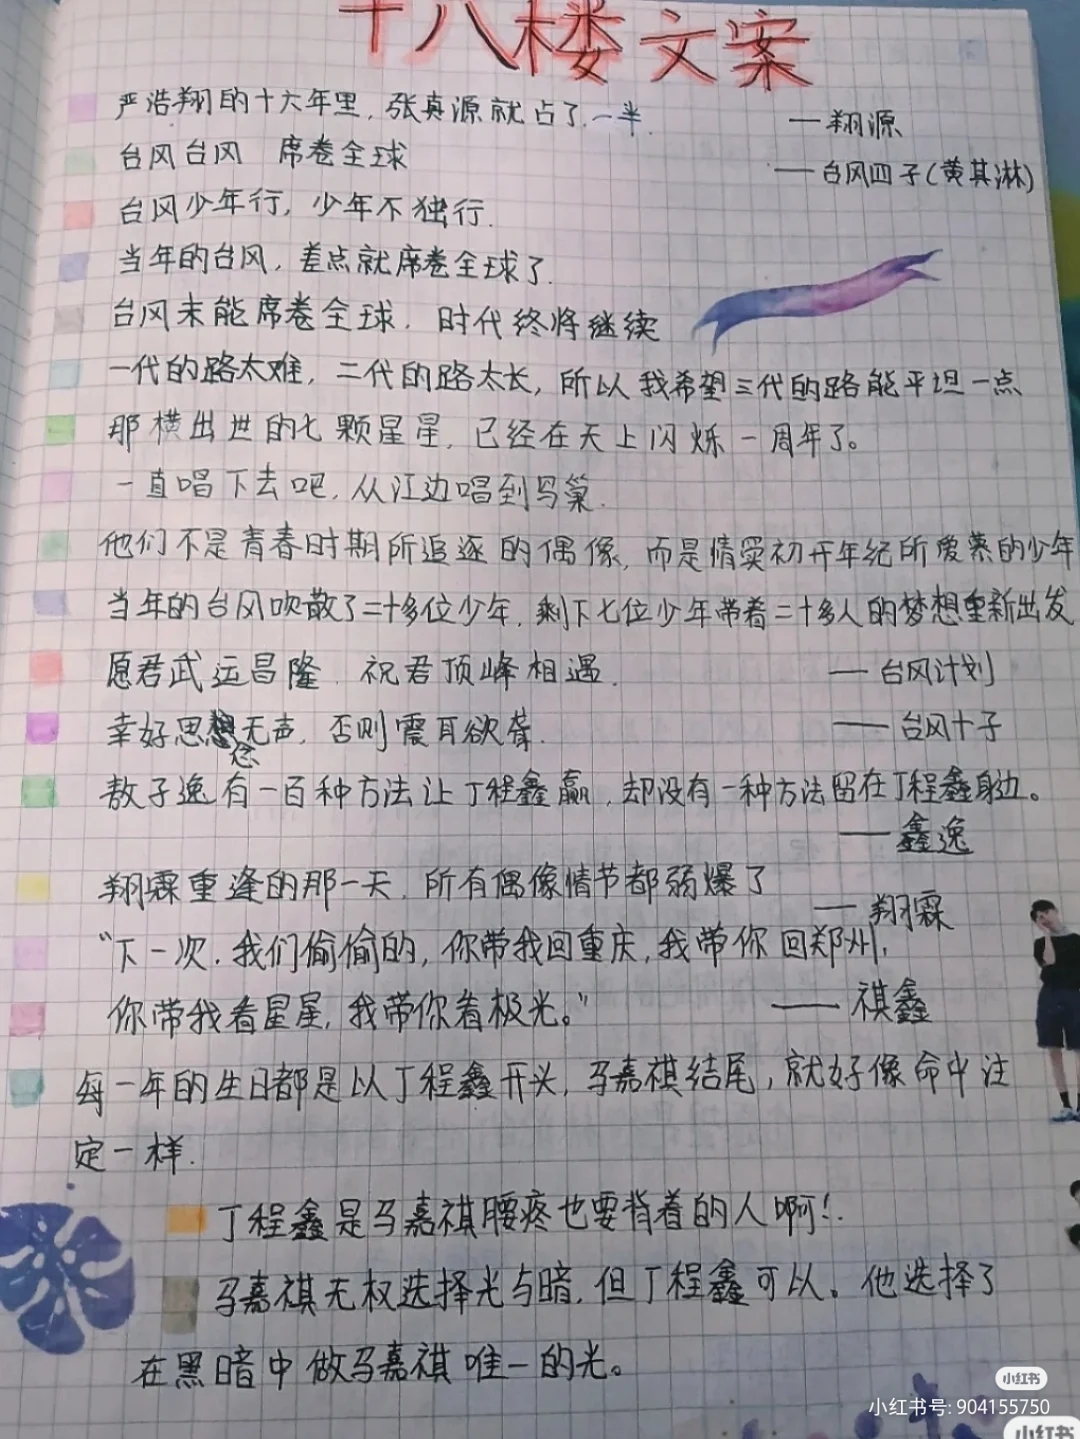 十八楼文案
严浩翔的十六年里,张真源就占了一半. —翔源
台风台风 席卷全球 ——台风四子(黄其淋)
台风少年行,少年不独行.
当年的台风,差点就席卷全球了.
台风未能席卷全球.时代终将继续
一代的路太难,二代的路太长,所以我希望三代的路能平坦一点
那横出世的七颗星星,已经在天上闪烁一周年了。
一直唱下去吧,从江边唱到鸟巢.
他们不是青春时期所追逐的偶像,而是情窦初开年纪所爱慕的少年
当年的台风吹散了二十多位少年,剩下七位少年带着二十多人的梦想重新出发
愿君武运昌隆.祝君顶峰相遇. ——台风计划
幸好思念无声,否则震耳欲聋. ——台风十子
敖子逸有一百种方法让丁程鑫赢,却没有一种方法留在丁程鑫身边。
——鑫逸
翔霖重逢的那一天.所有偶像情节都弱爆了
—翔霖
“下一次.我们偷偷的,你带我回重庆,我带你回郑州,
你带我看星星,我带你看极光。” ——祺鑫
每一年的生日都是以丁程鑫开头,马嘉祺结尾,就好像命中注
定一样.
丁程鑫是马嘉祺腰疼也要背着的人啊!.
马嘉祺无权选择光与暗,但丁程鑫可以。他选择了
在黑暗中做马嘉祺唯一的光。
小红书
小红书号: 904155750
小红书